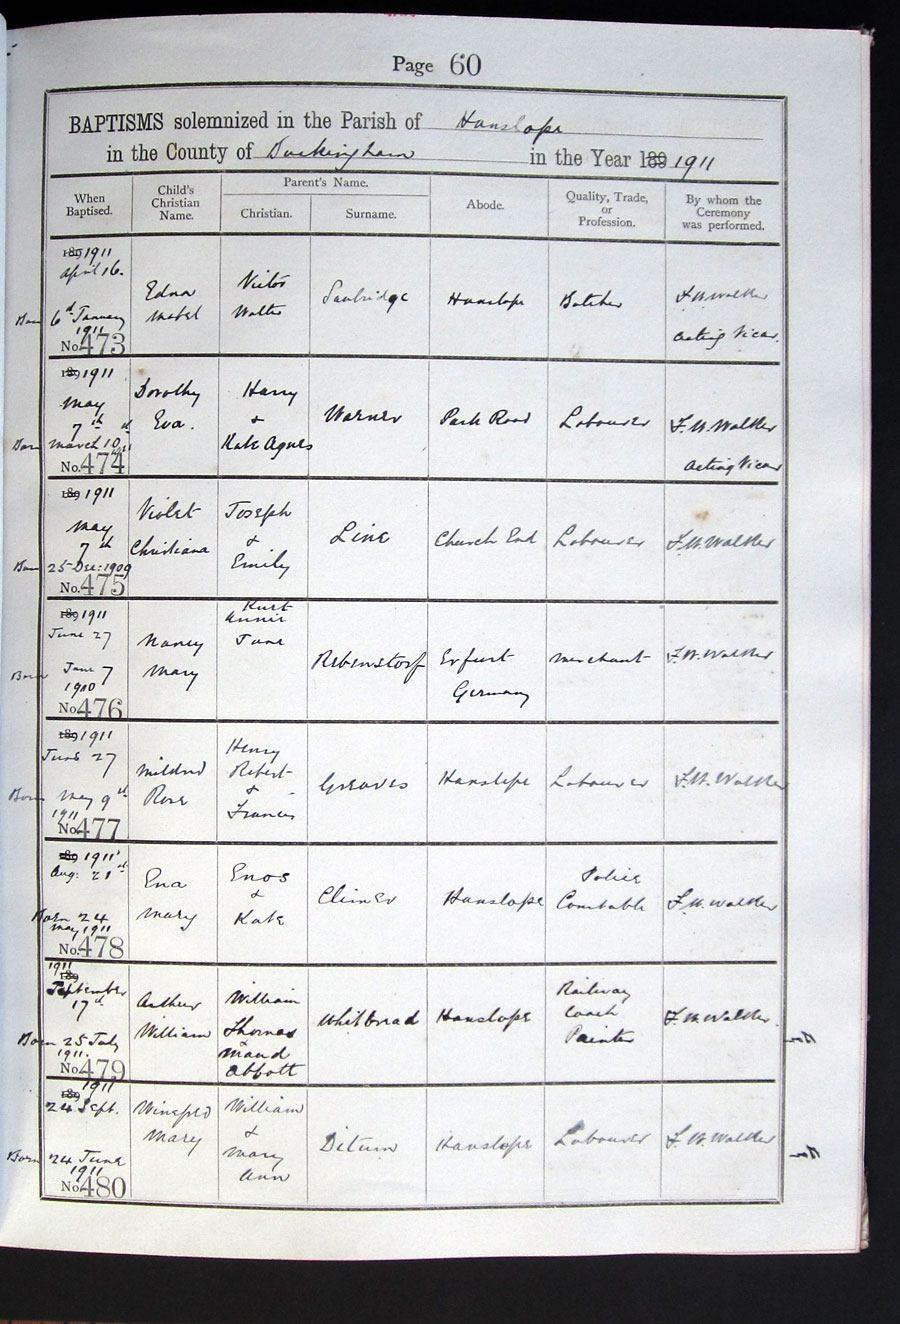 Page 60
BAPTISMS solemnized in the Parish of Hanslope
in the County of Buckingham in the Year 189 1911
When Baptised.
Child's Christian Name.
Parent's Name.
Christian.
Surname.
Abode.
Quality, Trade, or Profession.
By whom the Ceremony was performed.
189 1911
April 16.
Born 6th January
1911
No. 473
Edna
Mabel
Victor
Walter
Sawbridge
Hanslope
Butcher
F.W. Walker
Acting Vicar.
189 1911
May
7th
Born March 10
No. 474
Dorothy
Eva.
Harry
&
Kate Agnes
Warner
Park Road
Labourer
F.W. Walker
Acting Vicar
189 1911
May
7th
Born 25 Dec: 1909
No. 475
Violet
Christiana
Joseph
&
Emily
Line
Church End
Labourer
F.W. Walker
189 1911
June 27
Born June 7
1910
No. 476
Nancy
Mary
Kurt
Annie
Jane
Rebenstorf
Erfurt
Germany
Merchant
F.W. Walker
189 1911
June 27
Born May 9th
1911
No. 477
Mildred
Rose
Henry
Robert
&
Frances
Greaves
Hanslope
Labourer
F.W. Walker
189 1911
Aug: 21st
Born 24
May 1911
No. 478
Ena
Mary
Enos
&
Kate
Climer
Hanslope
Police
Constable
F.W. Walker
1911
189
September
17th
Born 25 July
1911.
No. 479
Arthur
William
William
Thomas
&
Maud
Abbott
Whitbread
Hanslope
Railway
Coach
Painter
F.W. Walker.
1911
189
24 Sept.
Born 24 June
1911
No. 480
Winifred
Mary
William
&
Mary
Ann
Ditum
Hanslope
Labourer
F.W. Walker